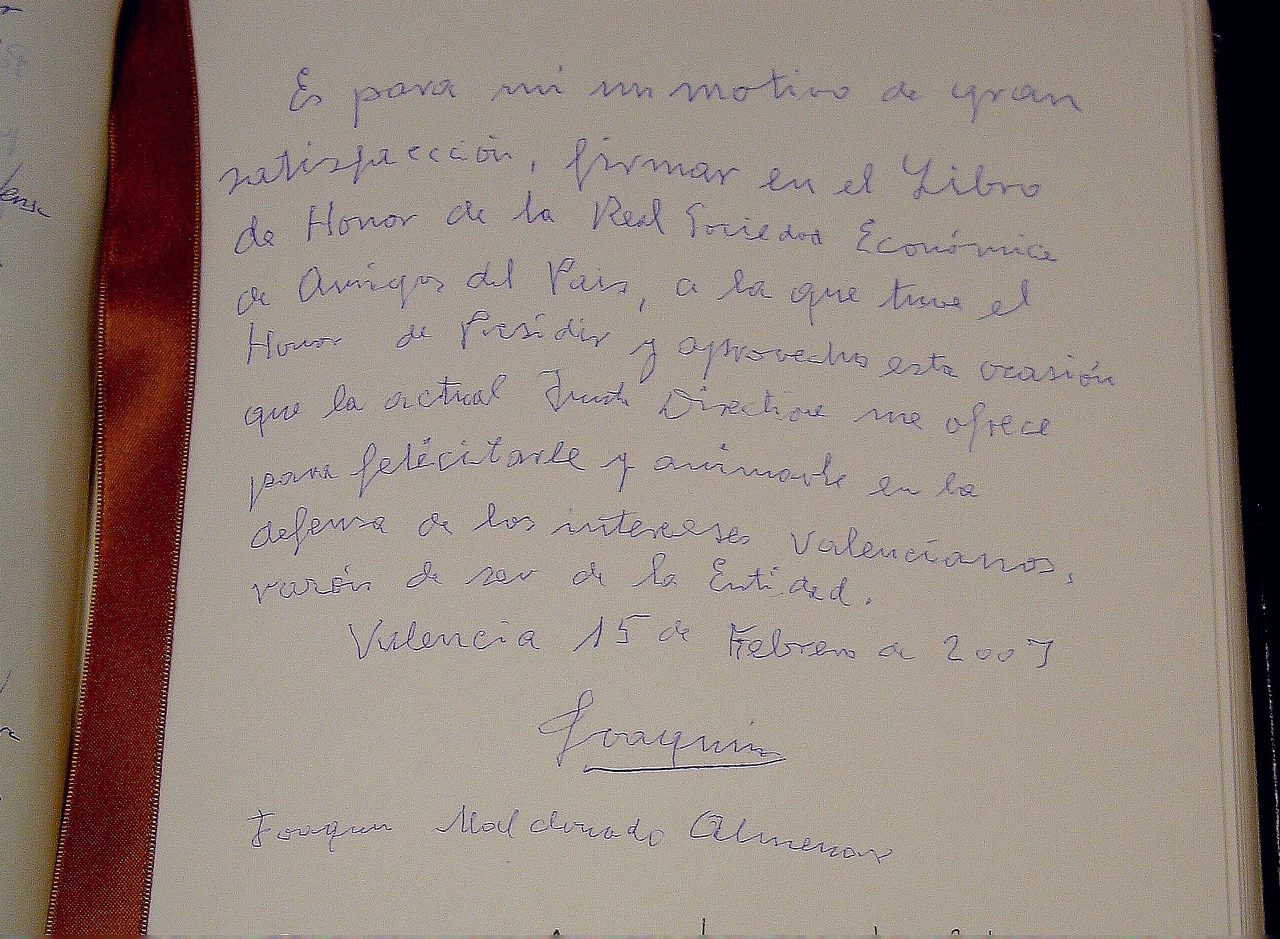 Es para mí un motivo de gran
satisfacción, firmar en el Libro
de Honor de la Real Sociedad Económica
de Amigos del Pais, a la que tuve el
Honor de Presidir y aprovecho esta ocasión
que la actual Junta Directiva me ofrece
para felicitarle y animarle en la
defensa de los intereses valencianos,
razón de ser de la Entidad.
Valencia 15 de Febrero de 2007
Joaquin
Joaquin Maldonado Almenar